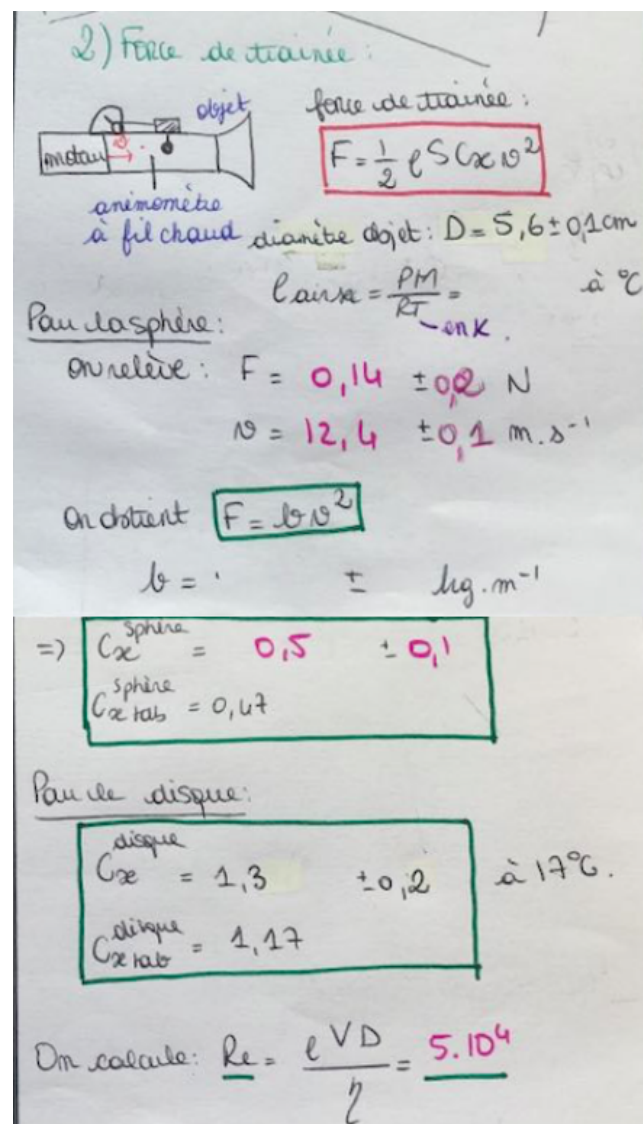 2) Force de trainée :
objet
moteur
anémomètre
à fil chaud
force de trainée :
F = 1/2 ρ S Cx v²
diamètre objet : D = 5,6 ± 0,1 cm
ρ air sec = PM/RT = à °C
en K.
Pour la sphère :
on relève : F = 0,14 ± 0,2 N
v = 12,4 ± 0,1 m.s⁻¹
On obtient F = b v²
b = ± kg.m⁻¹
=> Cx sphère = 0,5 ± 0,1
Cx tab sphère = 0,47
Pour le disque :
Cx disque = 1,3 ± 0,2 à 17°C.
Cx tab disque = 1,17
On calcule : Re = ρVD/η = 5.10⁴